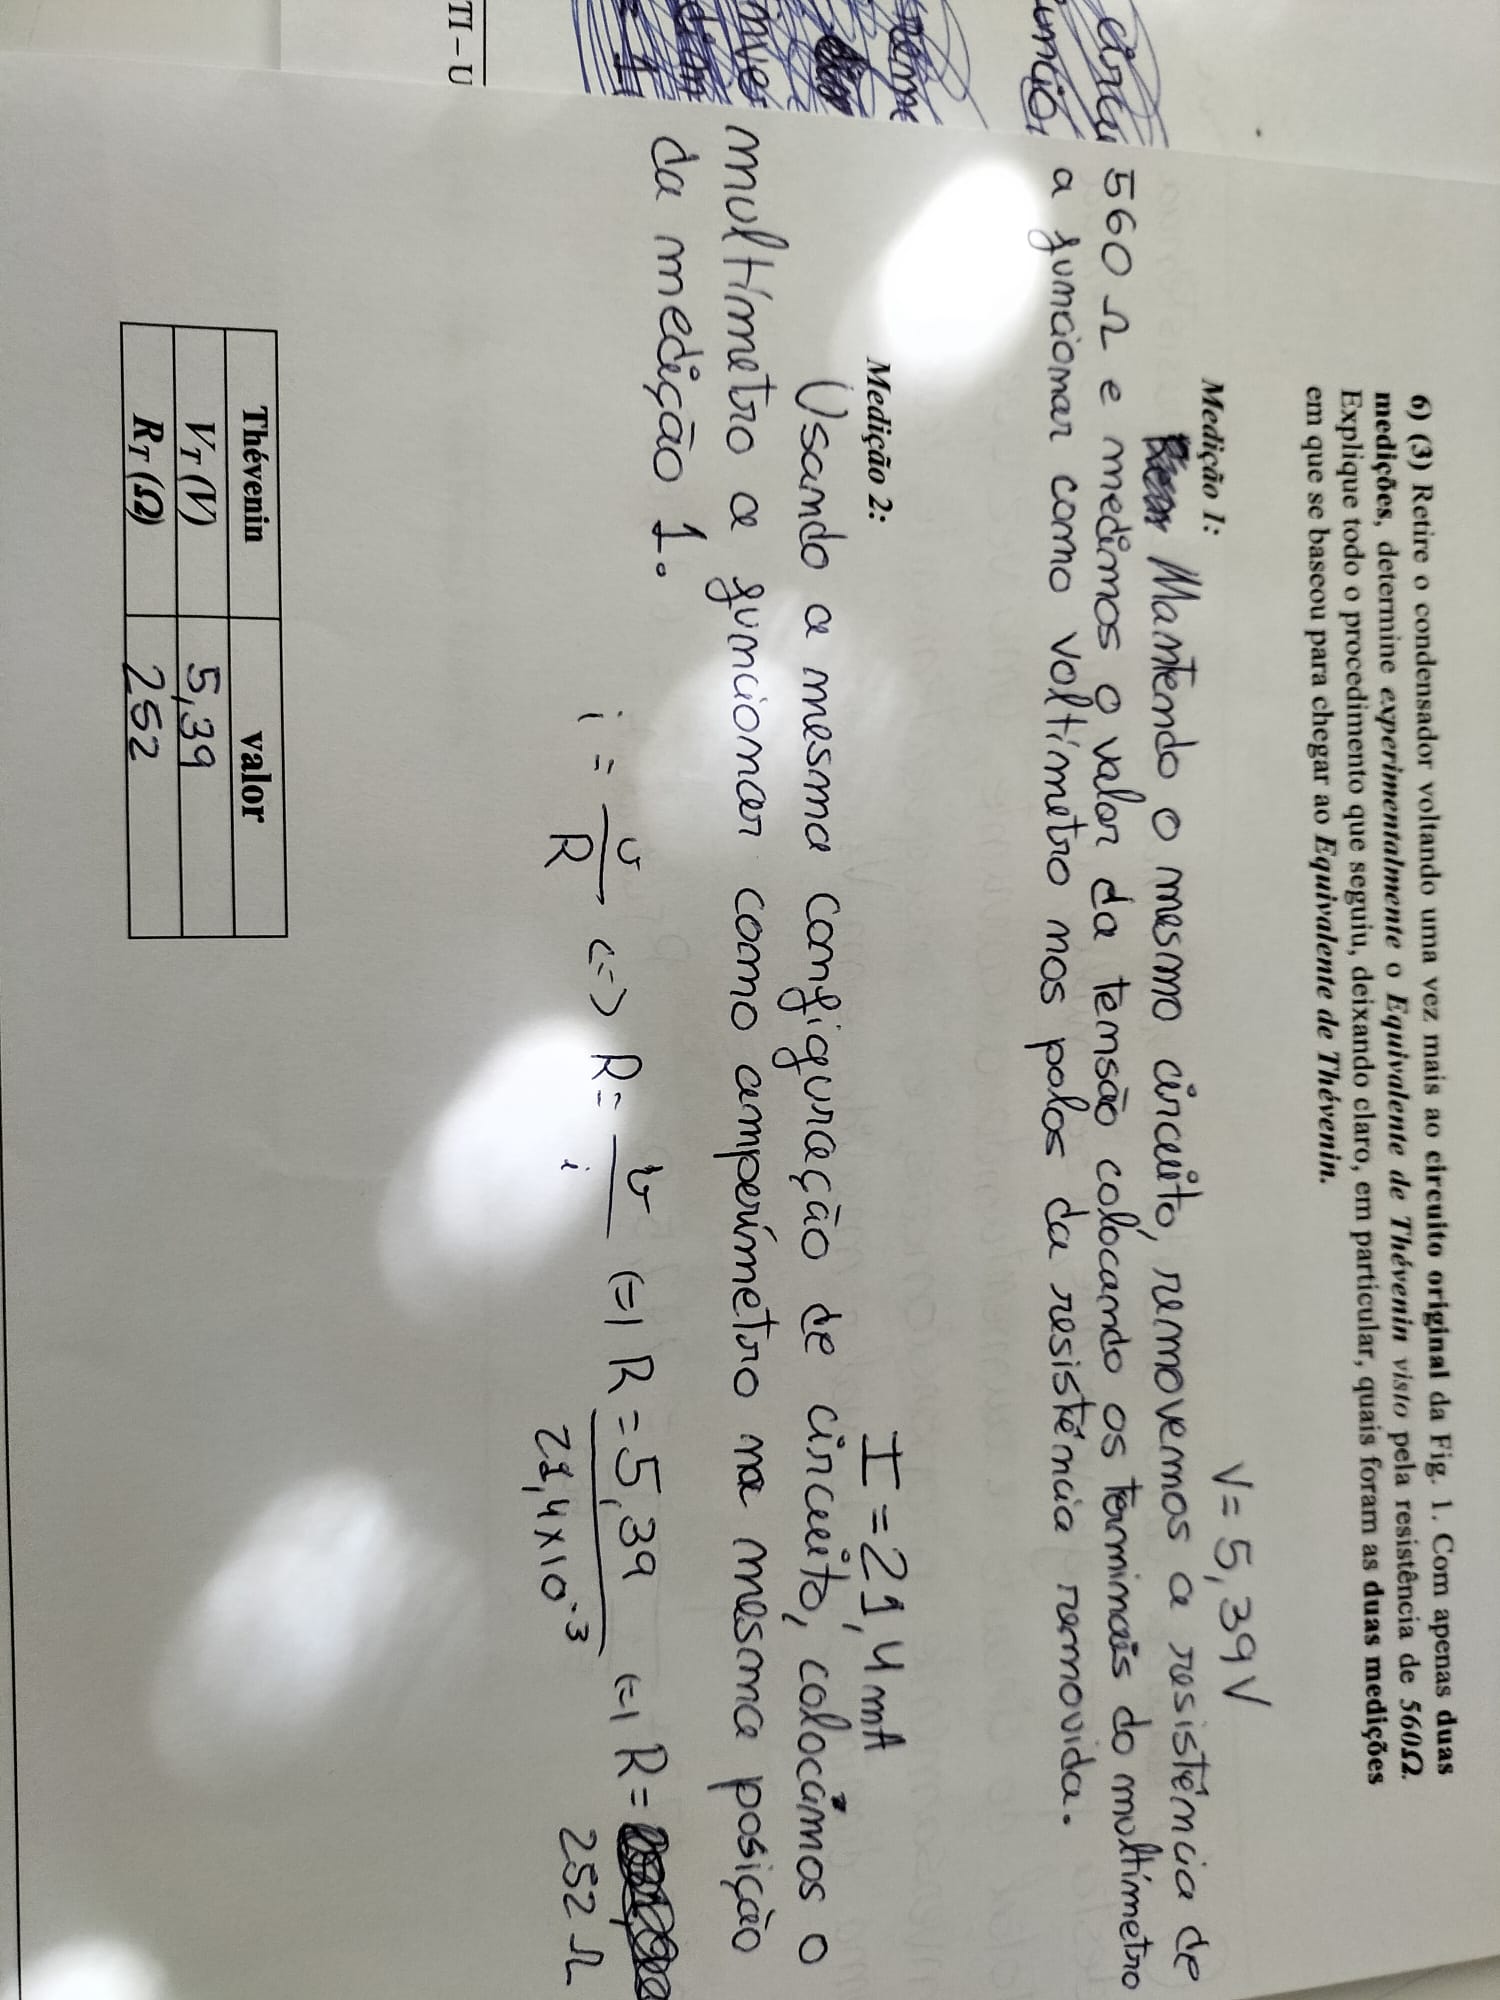 6) (3) Retire o condensador voltando uma vez mais ao circuito original da Fig. 1. Com apenas duas
medições, determine experimentalmente o Equivalente de Thévenin visto pela resistência de 560Ω.
Explique todo o procedimento que seguiu, deixando claro, em particular, quais foram as duas medições
em que se baseou para chegar ao Equivalente de Thévenin.
Medição 1:
V = 5,39V
Mantendo o mesmo circuito, removemos a resistência de
560 Ω e medimos o valor da tensão colocando os terminais do multímetro
a funcionar como voltímetro nos polos da resistência removida.
Medição 2:
I = 21,4 mA
Usando a mesma configuração de circuito, colocámos o
multímetro a funcionar como amperímetro na mesma posição
da medição 1.
i = v/R <=> R = v/i (=) R = 5,39/21,4x10^-3 (=) R =
252 Ω
Thévenin valor
V_T (V) 5,39
R_T (Ω) 252
TI – U